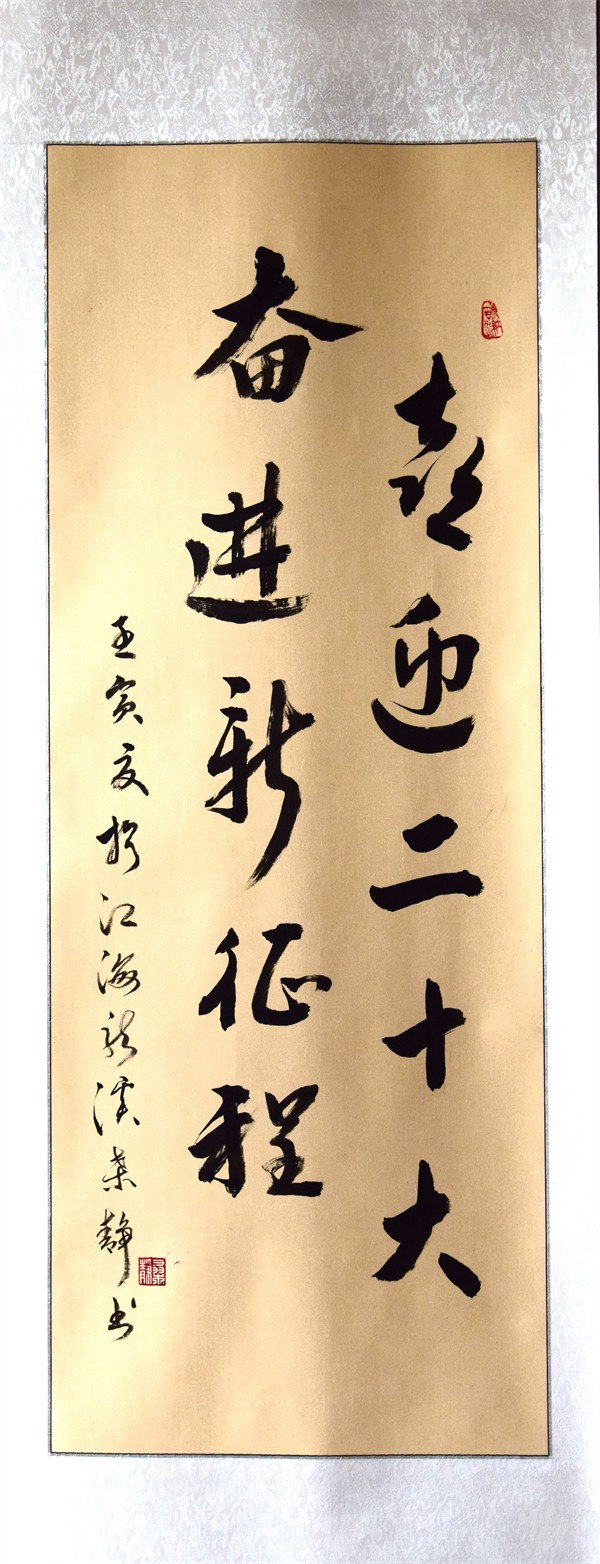 喜迎二十大
奋进新征程
壬寅夏於江海新桑静书